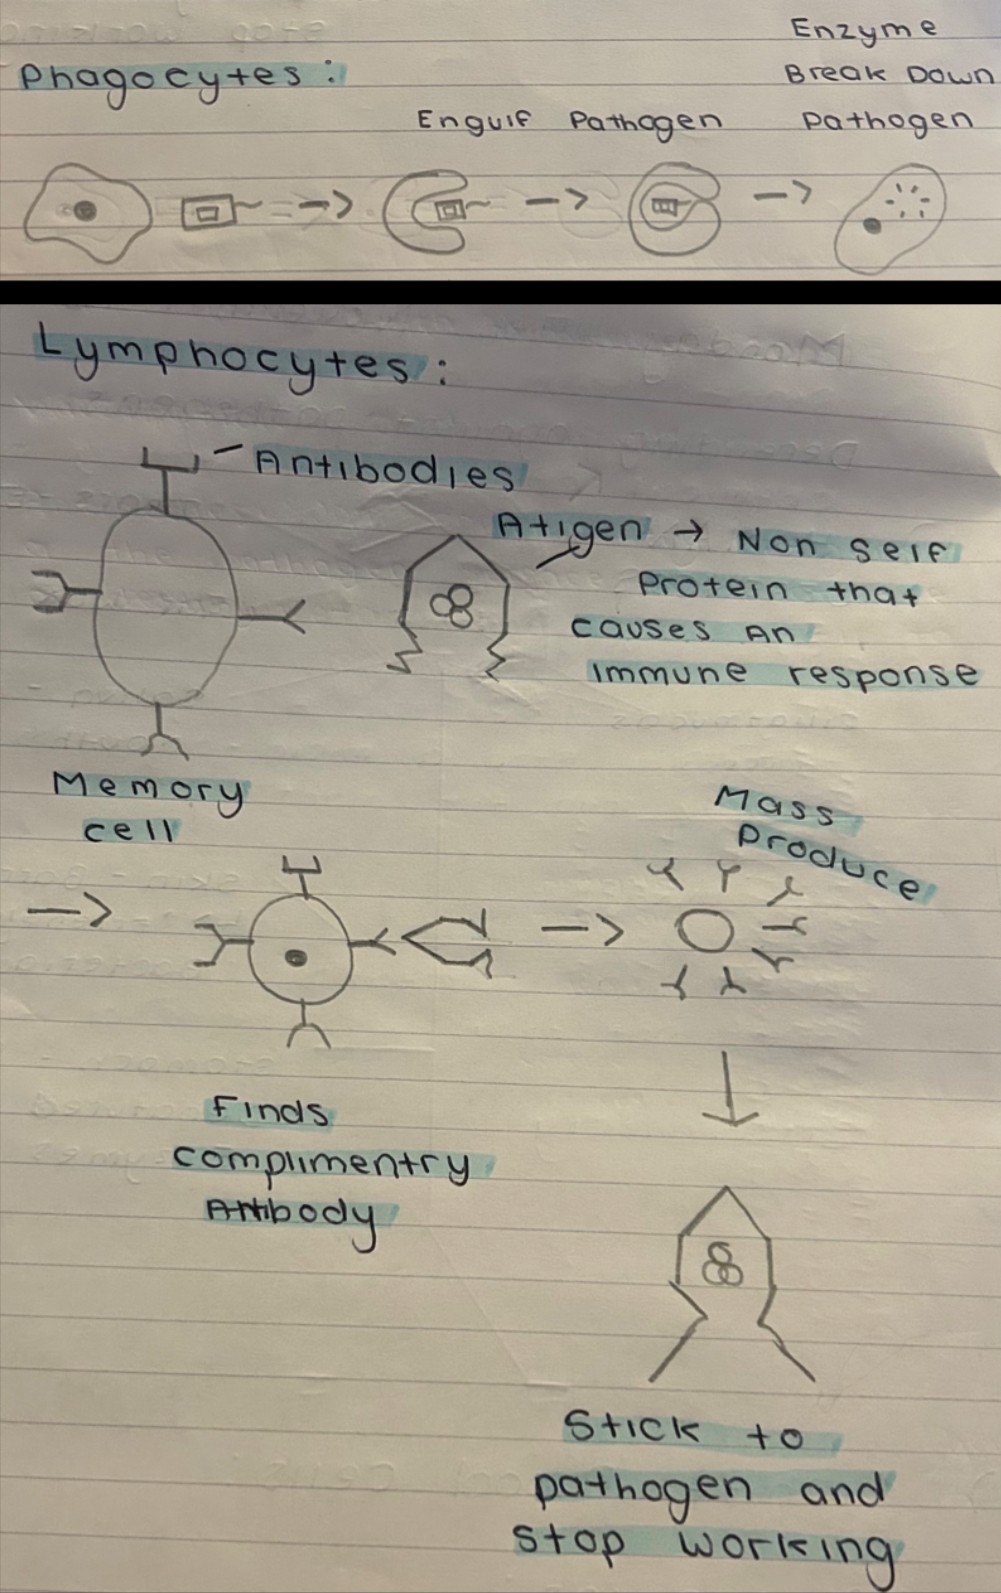 Phagocytes:
Engulf Pathogen
Enzyme
Break Down
Pathogen
Lymphocytes:
Antibodies
Atigen → Non self
Protein that
causes An
immune response
Memory
cell
Mass
Produce
Finds
complimentry
Antibody
Stick to
pathogen and
stop working